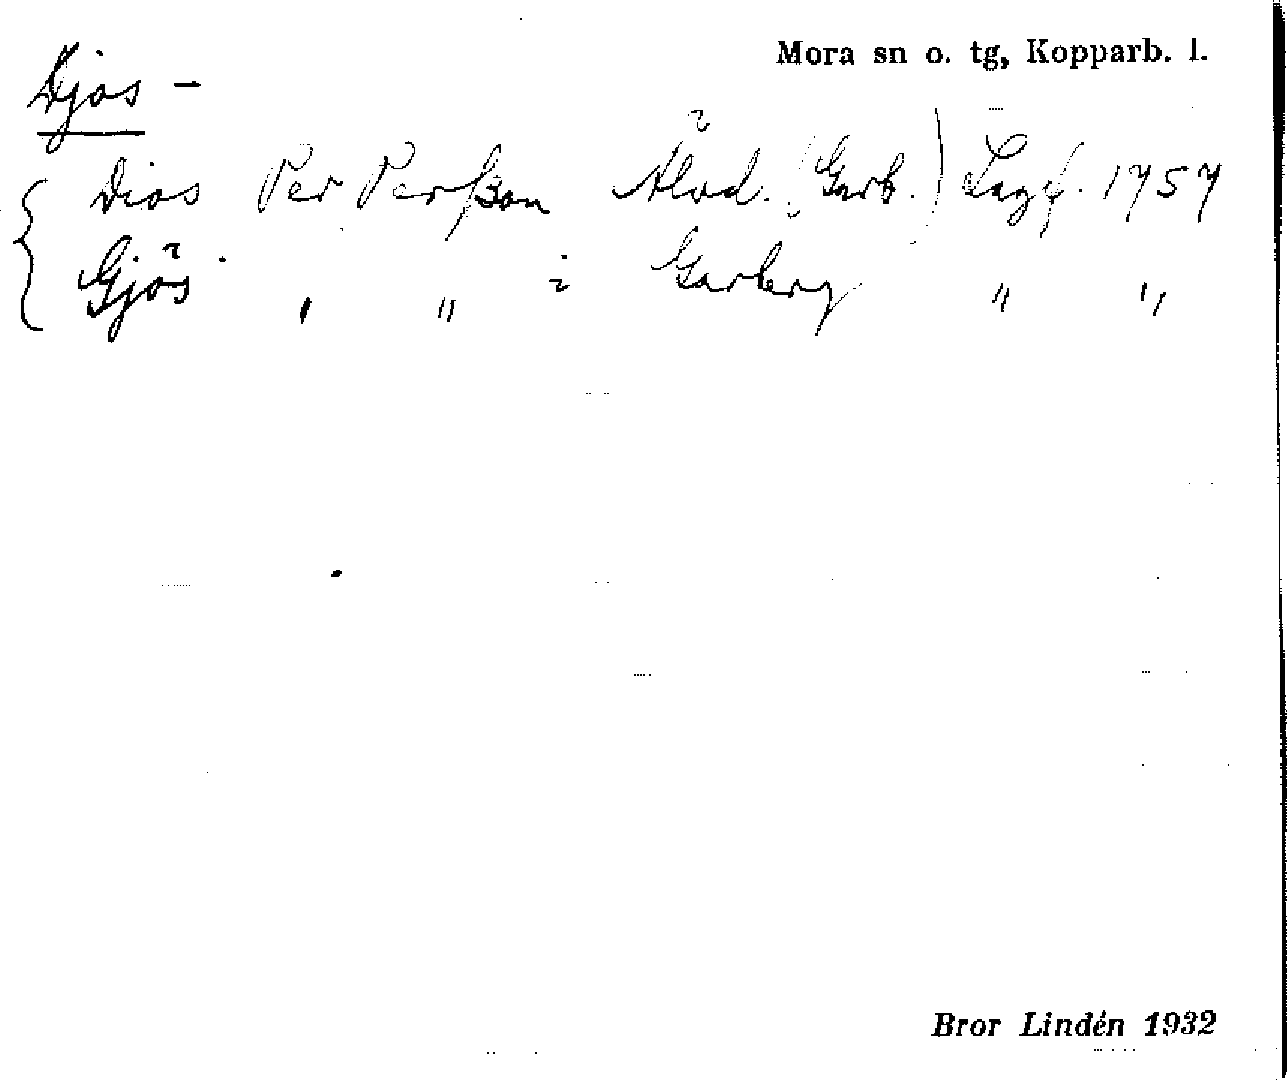 Mora sn o. tg, Kopparb. l.
Djos –
Dios Per Perßon Älvd. (Garb.) Lagf. 1757
Gjös " " i Garberg " "
Bror Lindén 1932